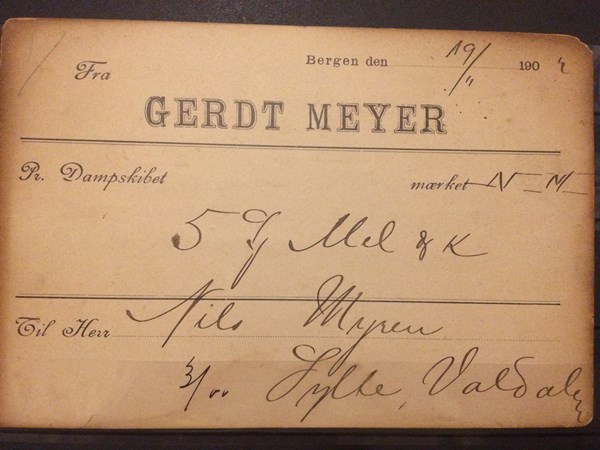 Fra Bergen den 19/11 190
GERDT MEYER
Pr. Dampskibet mærket N M
5 Mel & K
Til Herr Nils Myren
Sylte, Valdalen